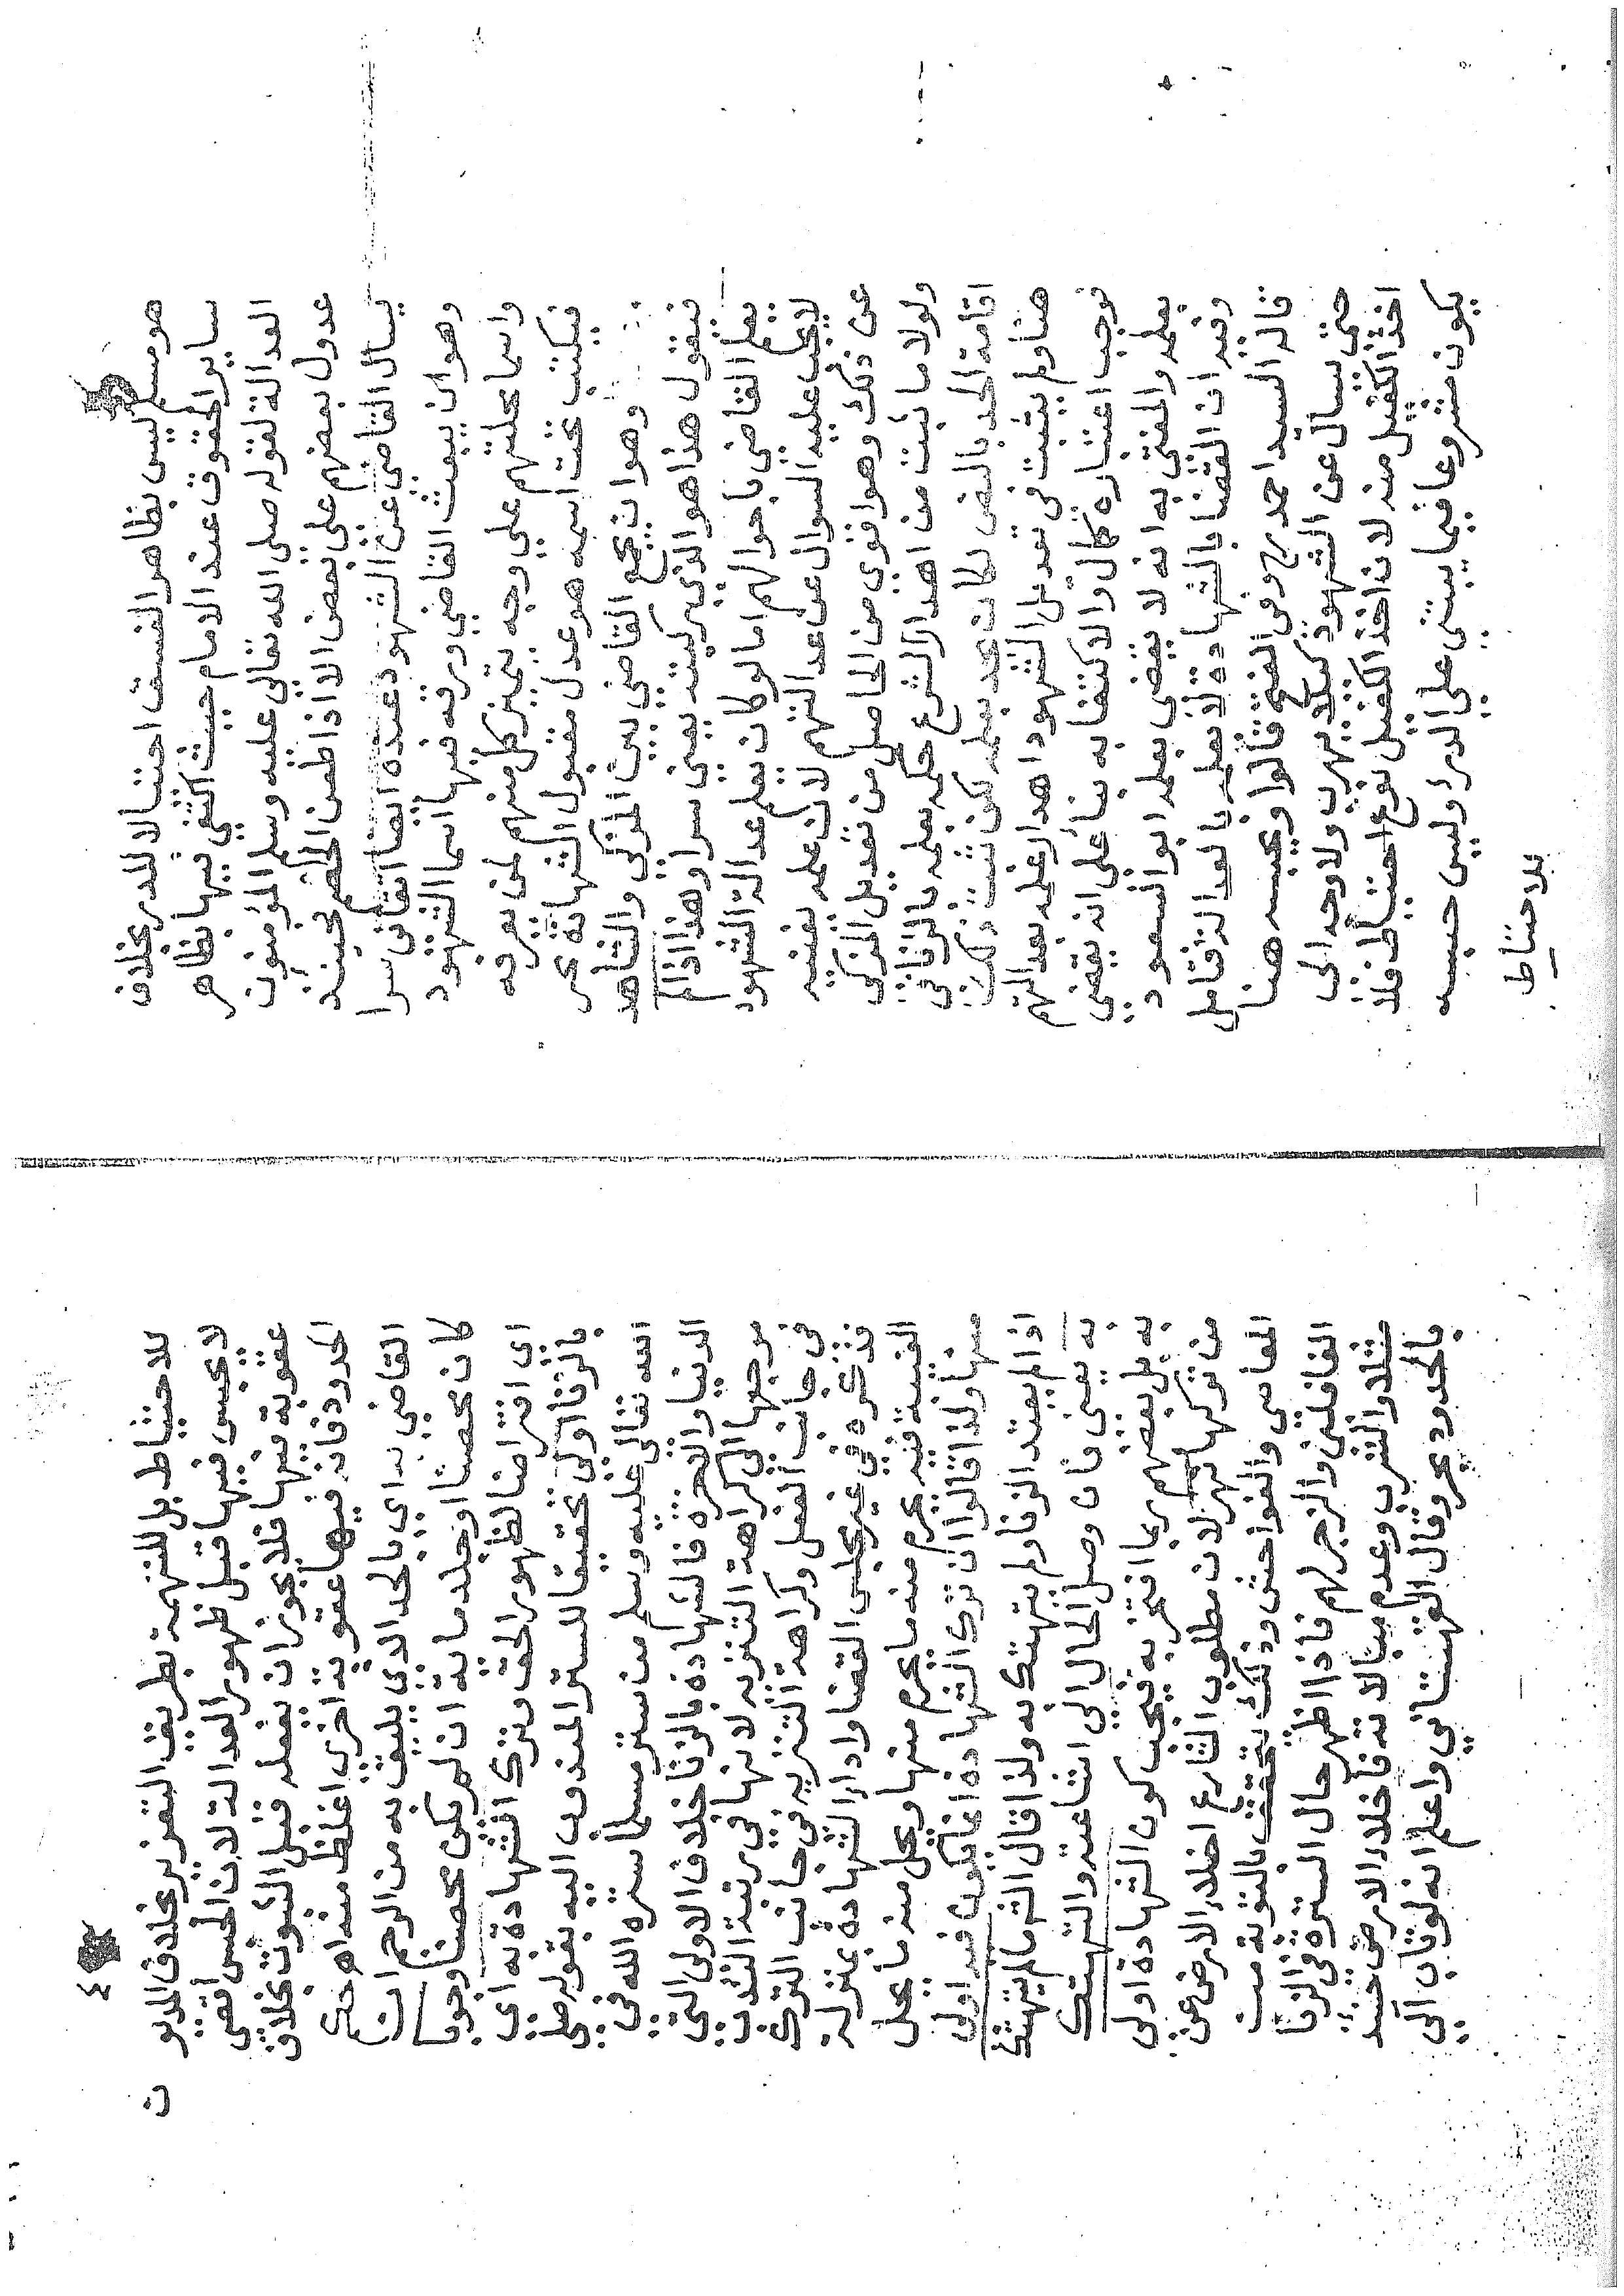 هو مسلم ليس بظاهر الفسق احتيالا للدرء بخلاف
ساير الحقوق عند الامام حيث اكتفي فيها بظاهر
العدالة لقوله صلى الله تعالى عليه وسلم المؤمنون
عدول بعضهم على بعض الا اذا طعن الخصم فحينئذ
يسأل القاضي عن الشهود عنده ايضا اتفاقا سرا
وهو ان يبعث القاضي ورقة فيها اسما الشهود
واسما محلتهم على وجه يتميز كل منهم لمن يعرفه
فيكتب تحت اسمه هو عدل مقبول الشهادة
وهو ان يجمع القاضي بين المزكي والشاهد
فيقول هذا هو الذي زكيته يعني سرا وهذا اذا لم
يعلم القاضي باحوالهم اما لو كان يعلم عدالة الشهود
لا يجب عليه السوال عن عدالتهم لان علمه يغنيه
عن ذلك وهو اقوى من الحاصل من تعديل المزكي
ولولا ما ثبت من اهدار الشرع حكمه بعلمه بالزنا في
اقامة الحد بالنص لكان يحد بعلمه لكن ثبت ذلك
هنا ولم يثبت في تعديل الشهود اهدار علمه بعدالتهم
فوجب اعتباره كمال والاكتفا به بنا على انه يقضي
بعلمه والمفتى به انه لا يقضي بعلمه ابو السعود
وفيه ان القضا بالشهادة لا بعلمه بالعدالة فتامل
قاله السيد احمد رح وفي الفتح قالوا ويحبسه هنا
حتى يسأل عن الشهود كيلا يهرب ولا وجه الى
اخذ الكفيل منه لان اخذ الكفيل نوع احتياط فلا
يكون مشروعا فيما يبتني على الدرء وليس حبسه
بلاحتياط
٤
للاحتياط بل للتهمة بطريق التعزير بخلاف الديو
ن
لا يحبس فيها قبل ظهور العدالة لان الحبس اقصى
عقوبة فيها فلا يجوز ان يفعله قبل الثبوت بخلاف
الحدود فانه فيها عقوبة اخرى اغلظ منه اهـ حكم
القاضي به اي بالحد الذي يليق به من الرجم ان
كان محصنا او جلد ماية ان لم يكن محصنا وجوبا
اي افتراضا لظهور الحق وترك الشهادة به اي
بالزنا اولى تحقيقا للستر المندوب اليه بقوله صلى
الله تعالى عليه وسلم من ستر مسلما ستره الله في
الدنيا والاخرة فالشهادة بالزنا خلاف الاولى التي
مرجعها الى كراهة التنزيه لانها في رتبة الندب
في جانب الفعل وكراهة التنزيه في جانب الترك
فتذكره في غير مجلس القضا وادا الشهادة بمنزلة
الغيبة فيه يحرم منه ما يحرم منها ويحل منه ما يحل
منها ولذا قالوا ان ترك الشهادة انما يكون فيه اولى
اذا لم يعتد الزنا ولم يتهتك به ولذا قال الشر ما لم يتهتك
به يعني فان وصل الحال الى اشاعته والتهتك
به بل بعضهم ربما افتخر به فيجب كون الشهادة اولى
من تركها نهر لان مطلوب الشارع اخلاء الارض عن
المعاصي والفواحش وذلك يتحقق بالتوبة من
الغافلين والزجر لهم فاذا ظهر حال الستره في الزنا
مثلا والشرب وعدم مبالاته فاخلاء الارض حينئذ
بالحدود بحر وقال القهستاني واعلم انه لو تاب الى